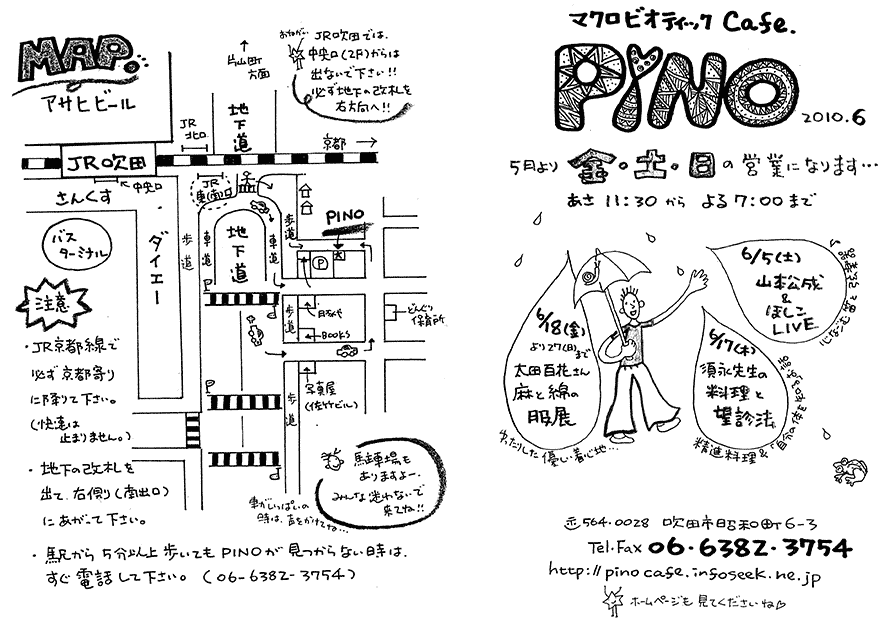 MAP.
アサヒビール
片山町
方面
おねがい
JR吹田では、
中央口(2F)からは
出ないで下さい!!
必ず地下の改札を
右方向へ!!
JR
北口
地下道
京都
JR吹田
中央口
さんくす
JR
東(南)口
バス
ターミナル
ダイエー
歩道
車道
地下道
車道
歩道
PINO
P
注意
歩道
BOOKS
どんぐり
保育所
写真屋
(佐竹ビル)
歩道
・JR京都線で
必ず京都寄り
に降りて下さい。
(快速は
止まりません。)
・地下の改札を
出て、右側り(南出口)
にあがって下さい。
駐車場も
ありますよー。
みんな迷わないで
来てね!!
車がいっぱいの
時は、声をかけてね…
・駅から5分以上歩いてもPINOが見つからない時は、
すぐ電話して下さい。(06-6382-3754)
マクロビオティック Cafe.
PiNO
2010.6
5月より 金・土・日の営業になります…
あさ 11:30から よる7:00まで
6/5(土)
山本公成
&
ほしこ
LIVE
6/18(金)
より27(日)まで
太田百花さん
麻と綿の
服展
ゆったりした優しい着心地…
6/17(木)
須永先生の
料理と
望診法。
精進料理&「自分の体を
〒564-0028 吹田市昭和町6-3
Tel・Fax 06・6382・3754
http://pinocafe.infoseek.ne.jp
ホームページも見てくださいね♡